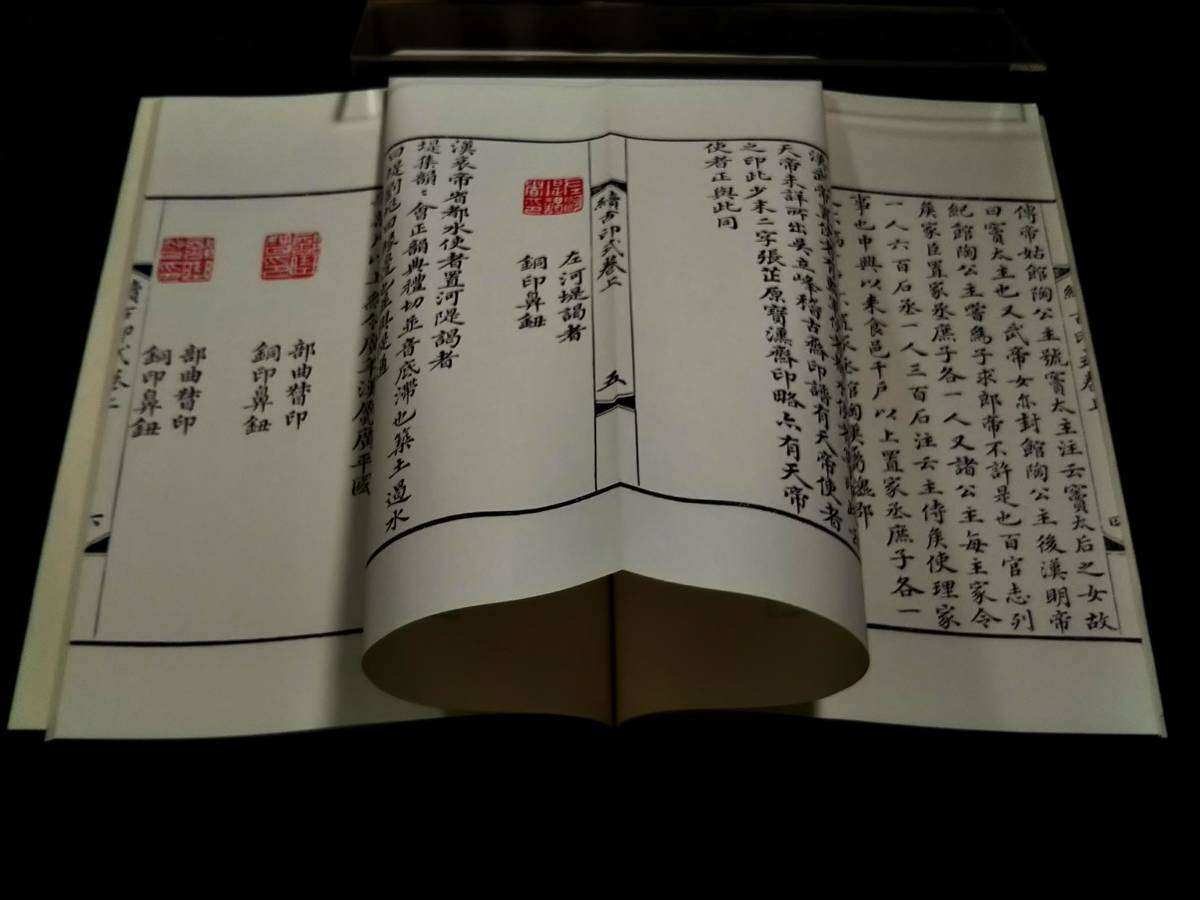 續古印式卷上
四
傳帝姑館陶公主號竇太主注云竇太后之女故
曰竇太主也又武帝女亦封館陶公主後漢明帝
紀館陶公主嘗爲子求郎帝不許是也百官志列
矦家臣置家丞庶子各一人又諸公主每主家令
一人六百石丞一人三百石注云主侍矦使理家
事也中興以来食邑千戶以上置家丞庶子各一
天帝未詳所出吳立峰稽古齋印譜有天帝使者
之印此少末二字張芷原寶漢齋印略亦有天帝
使者正與此同
續古印式卷上
五
左河堤謁者
銅印鼻鈕
漢哀帝省都水使者置河隄謁者
堤集韻〻會正韻典禮切並音底滯也築土遏水
部曲督印
銅印鼻鈕
部曲督印
銅印鼻鈕
續古印式卷上